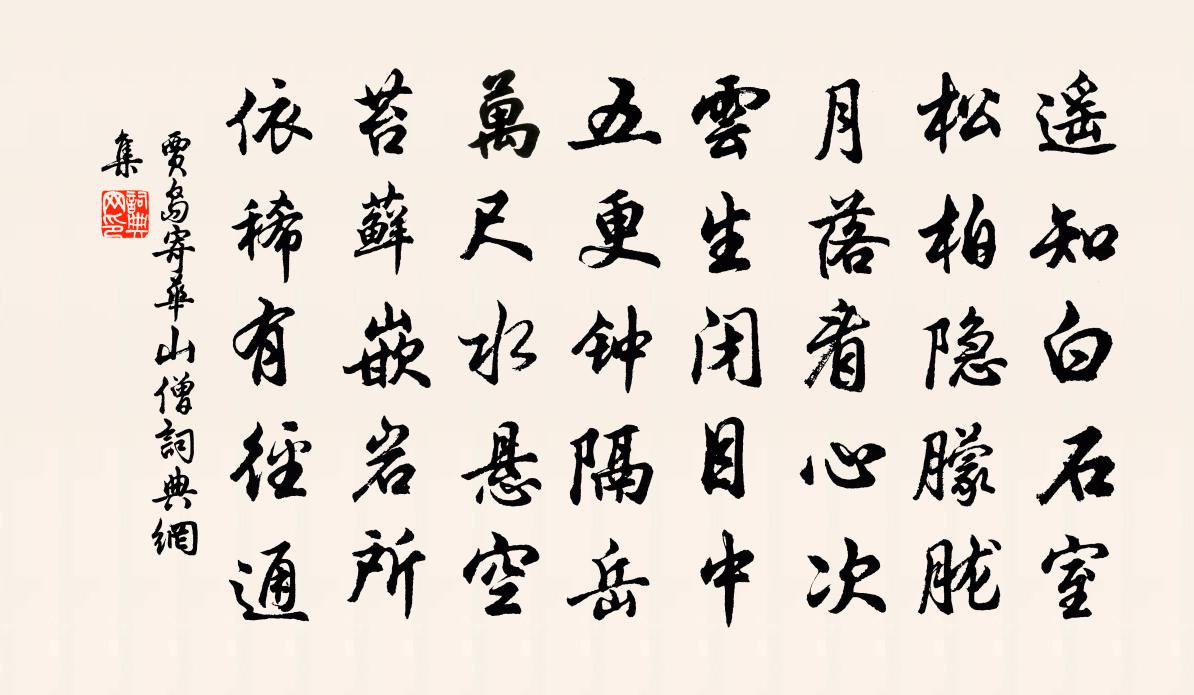 遥知白石室
松柏隐朦胧
月落看心次
雲生闭目中
五更钟隔岳
萬尺水悬空
苔蘚嵌岩所
依稀有徑通
賈島寄華山僧詞典網
集
詞典网印